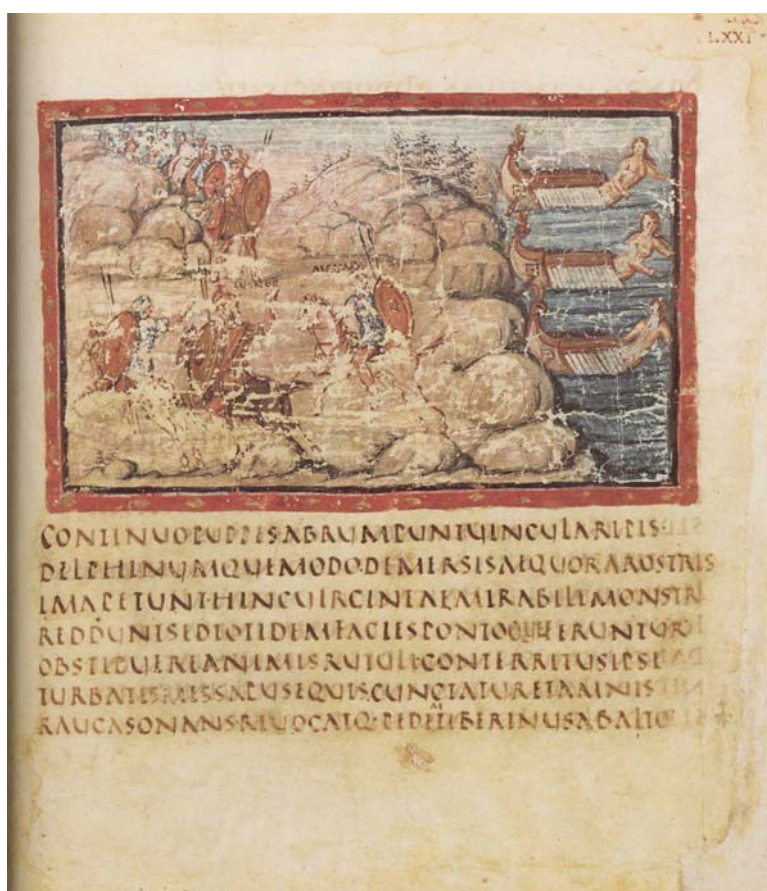 LXXI
CONTINUOPUPPISABRUMPUNTUINCULARIPIS
DELPHINUMQUEMODODEMERSISAEQUORAROSTRIS
IMAPETUNTHINCUIRGINEAEMIRABILEMONSTR
REDDUNTSEDTOTIDEMFACIESPONTOQUEFERUNTUR
OBSTIPUEREANIMISRUTULICONTERRITUSIPSE
TURBATISMESSAPUSEQUISCUNCTATURETAMNIS
RAUCASONANSREUOCATQ·PEDEMTIBERINUSABALTO